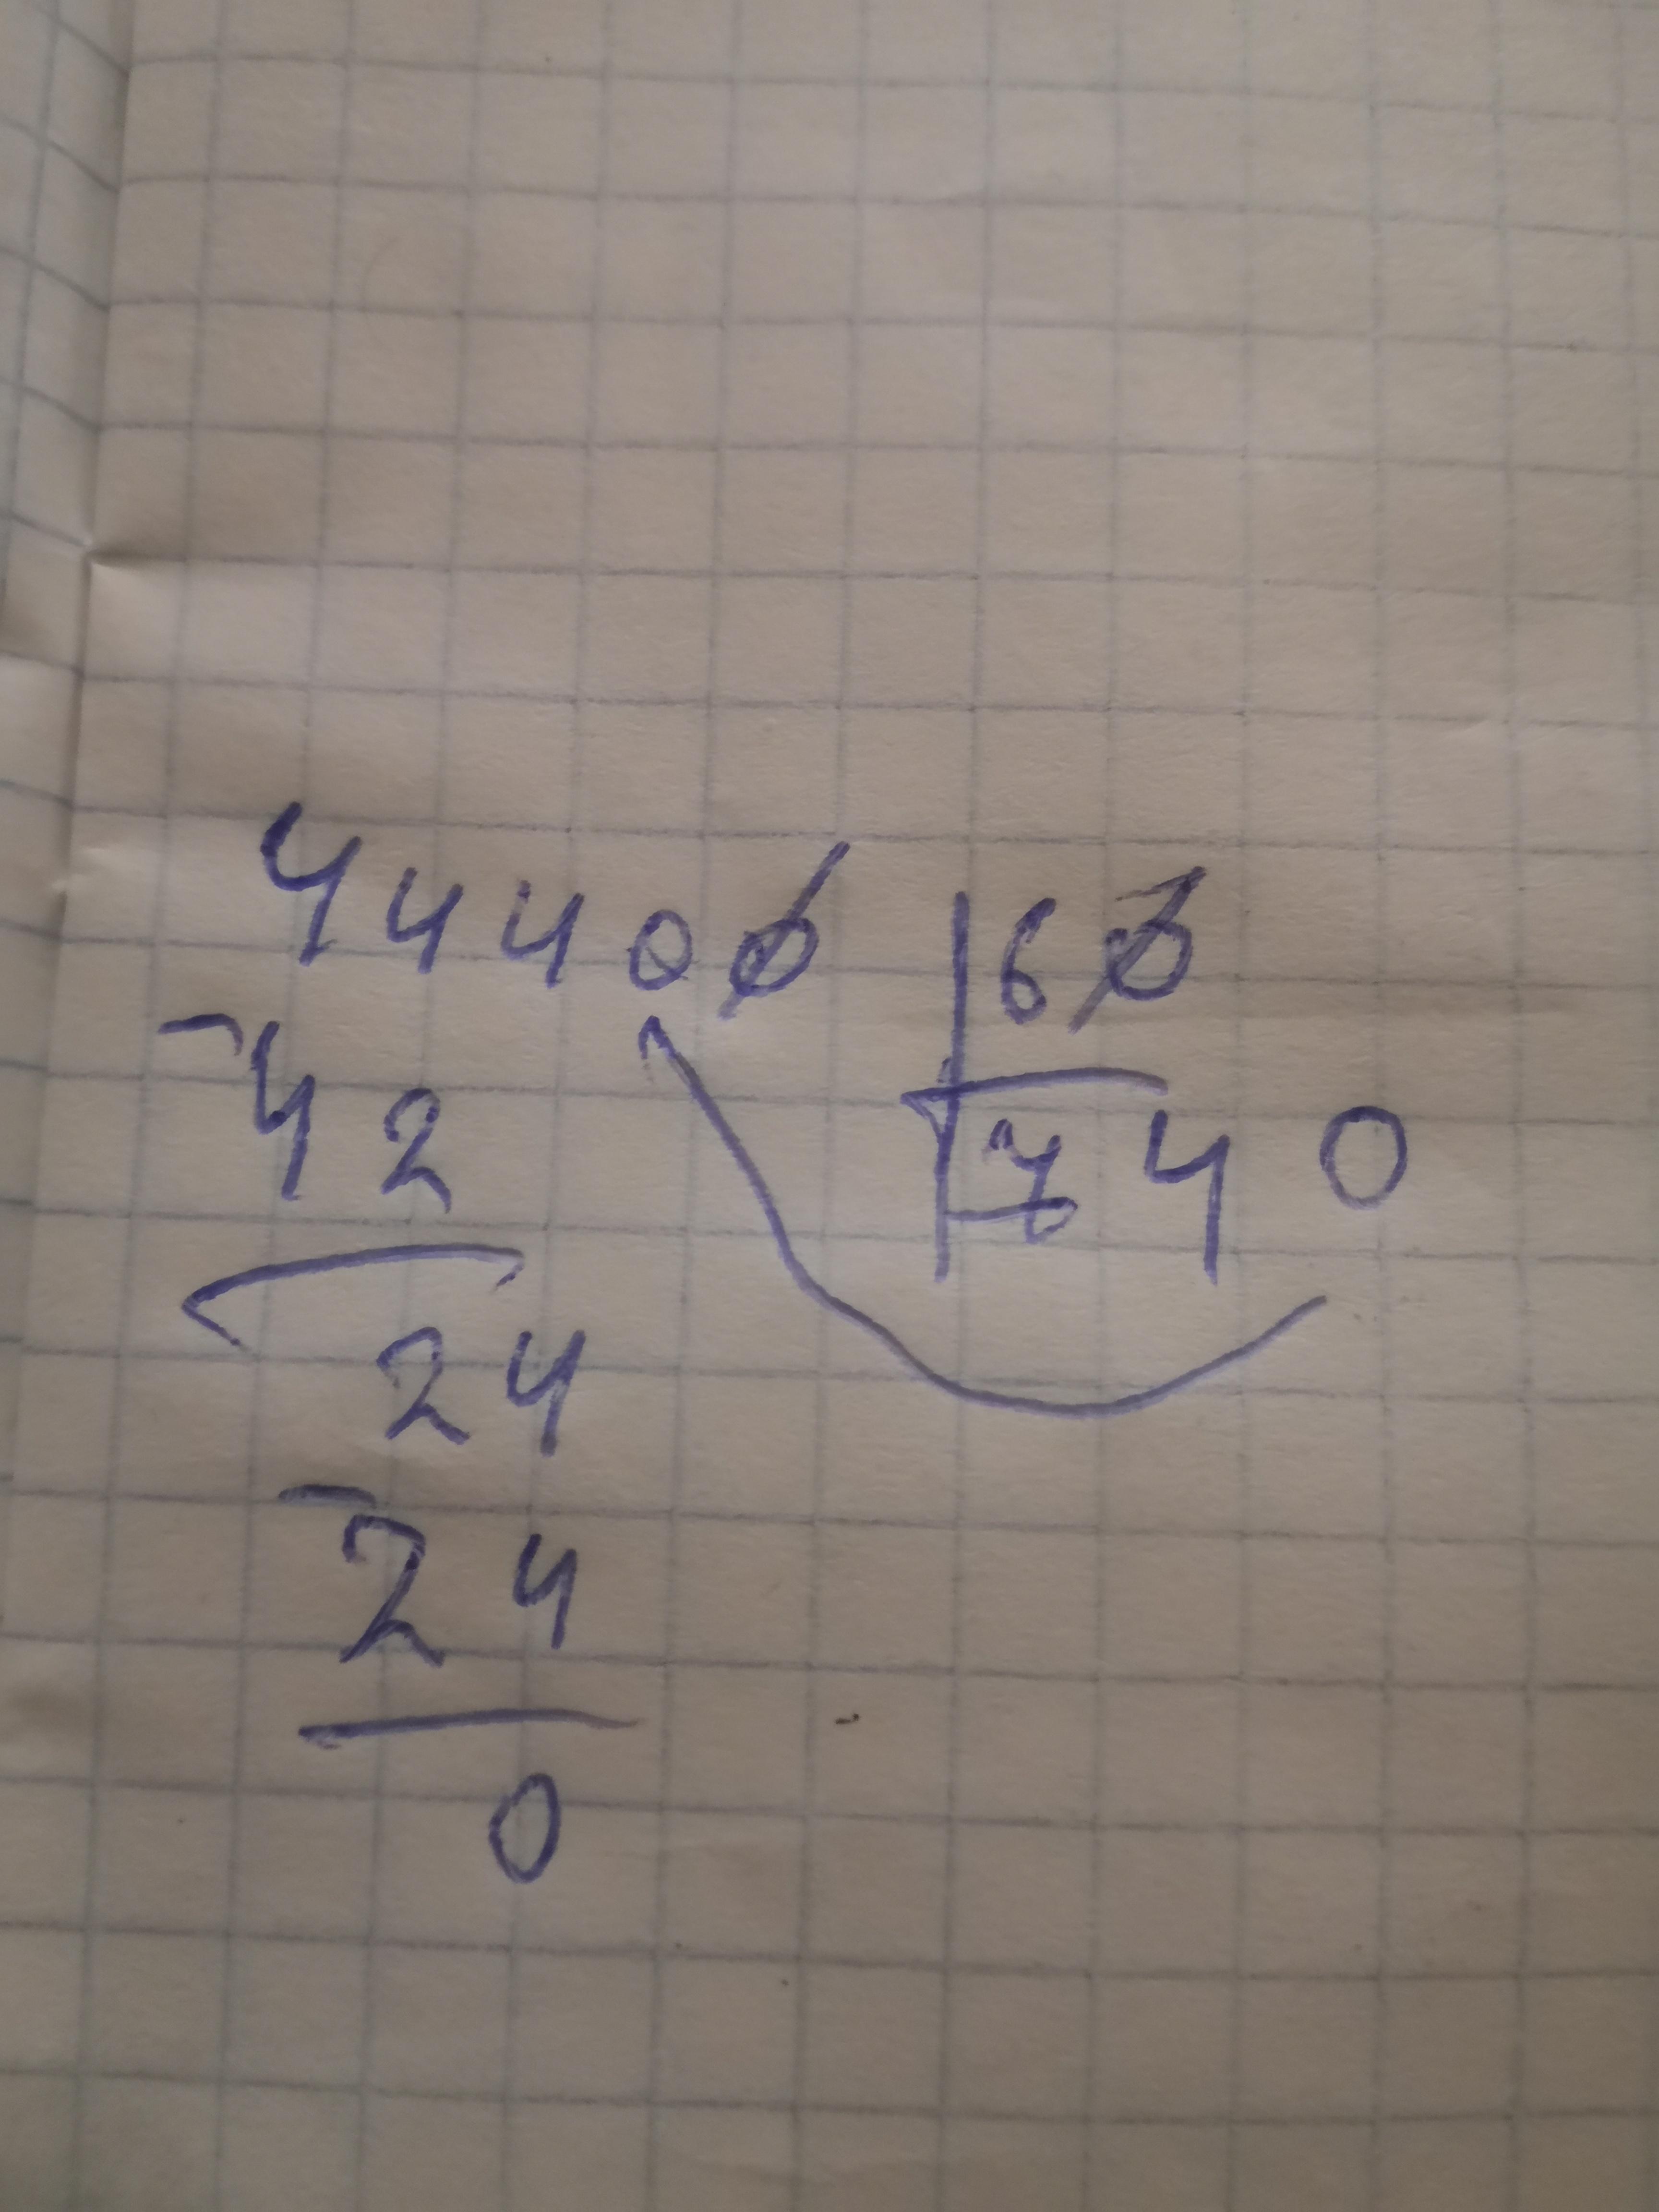 44400 60
42 740
24
24
0